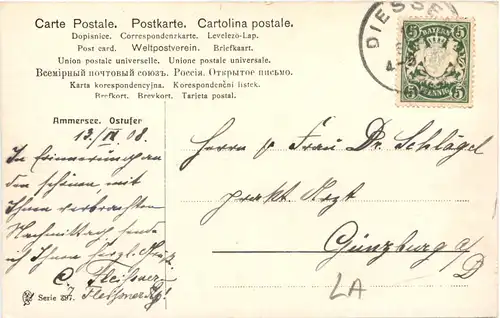 Carte Postale. Postkarte. Cartolina postale.
Dopisnice. Correspondenzkarte. Levelező-Lap.
Post card. Weltpostverein. Briefkaart.
Union postale universelle. Unione postale universale.
Всемірный почтовый союзъ. Россія. Открытое письмо.
Karta korespondencyjna. Korespondenční listek.
Brefkort. Brevkort. Tarjeta postal.
DIESSE
BAYERN
5 5
5 PFENNIG 5
Ammersee. Ostufer
13./IV 08.
In Erinnerung an
den schönen mit
Ihnen verbrachten
Nachmittag sende
ich Ihnen herzl.
C. Fleissner
J. Fleissner
Serie 897.
Herrn u Frau Dr. Schlägel
prakt. Arzt
Günzburg a/
D
LA